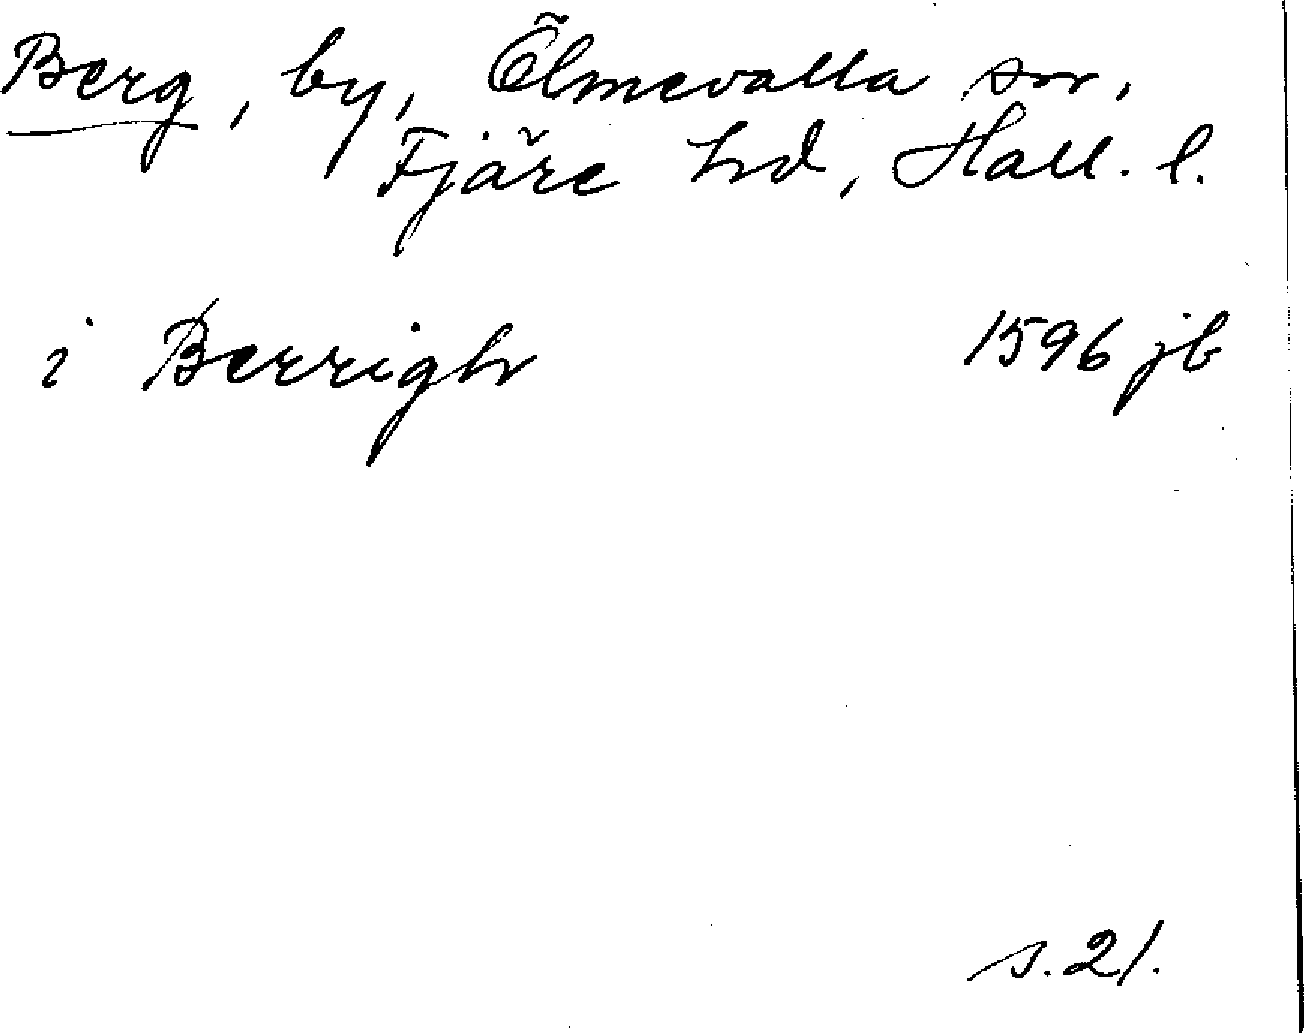 Berg, by, Ölmevalla sn,
Fjäre hd, Hall. l.
i Berrigh 1596 jb
s. 21.